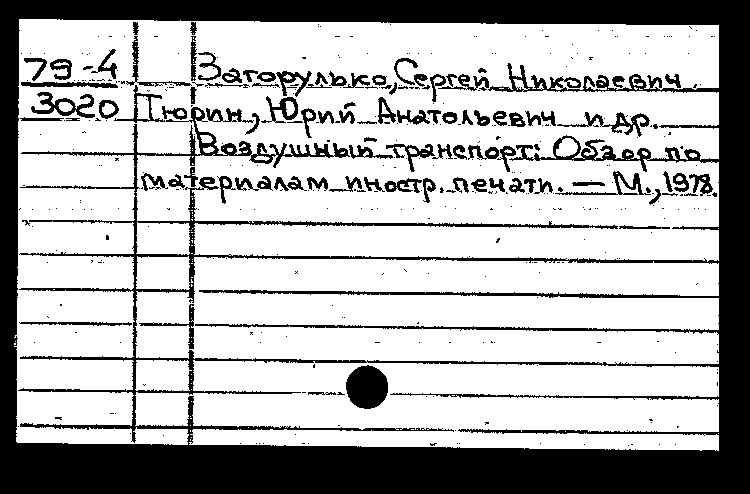 79-4 Загорулько, Сергей Николаевич
3020 Тюрин, Юрий Анатольевич и др.
Воздушный транспорт: Обзор по
материалам иностр. печати. — М., 1978.